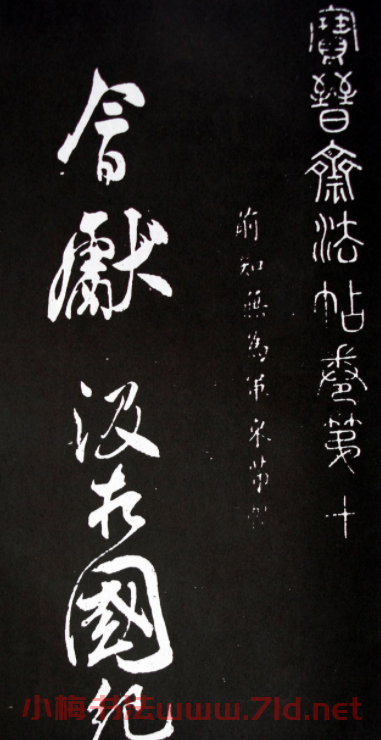 寶晉齋法帖卷第十
前知無為軍米芾
會獻國紀
小梅书法www.7ld.net